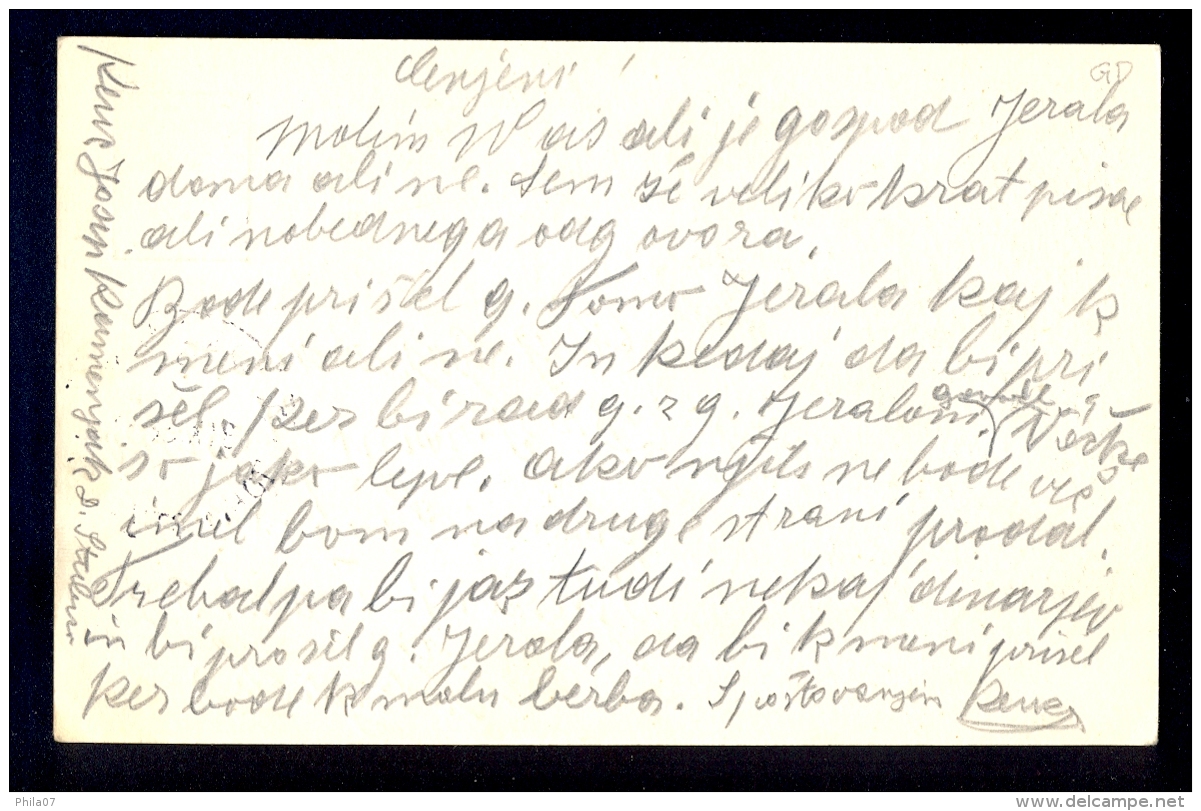 Cenjeni!
GD
Molim Vas ali je gospod Jerala
doma ali ne. Sem že velikokrat pisal
ali nobednega odgovora.
Bode prišel g. Tomo Jerala kaj k
meni ali ne. In kedaj da bi pri
šel, kes bi rad g. z g. Jeralom
so jako lepe. ako njih ne bode več
imel bom na druge strani prodal.
Trebal pa bi jaz tudi nekaj dinarjev
in bi prosil g. Jerala, da bi k meni prišel
kes bode k malu berba. Spoštovanjem
Josip Kamenjak
Phila07
www.delcampe.net